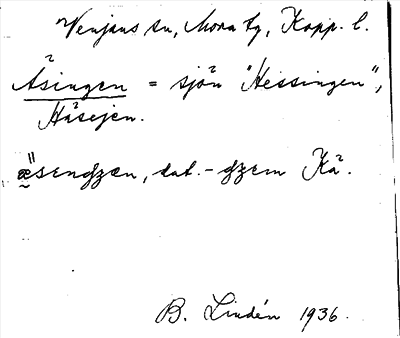 Venjans sn, Mora tg, Kopp. l.
Åsingen = sjön "Hessingen",
Håsejen.
dat. - Kå.
B. Lindén 1936.